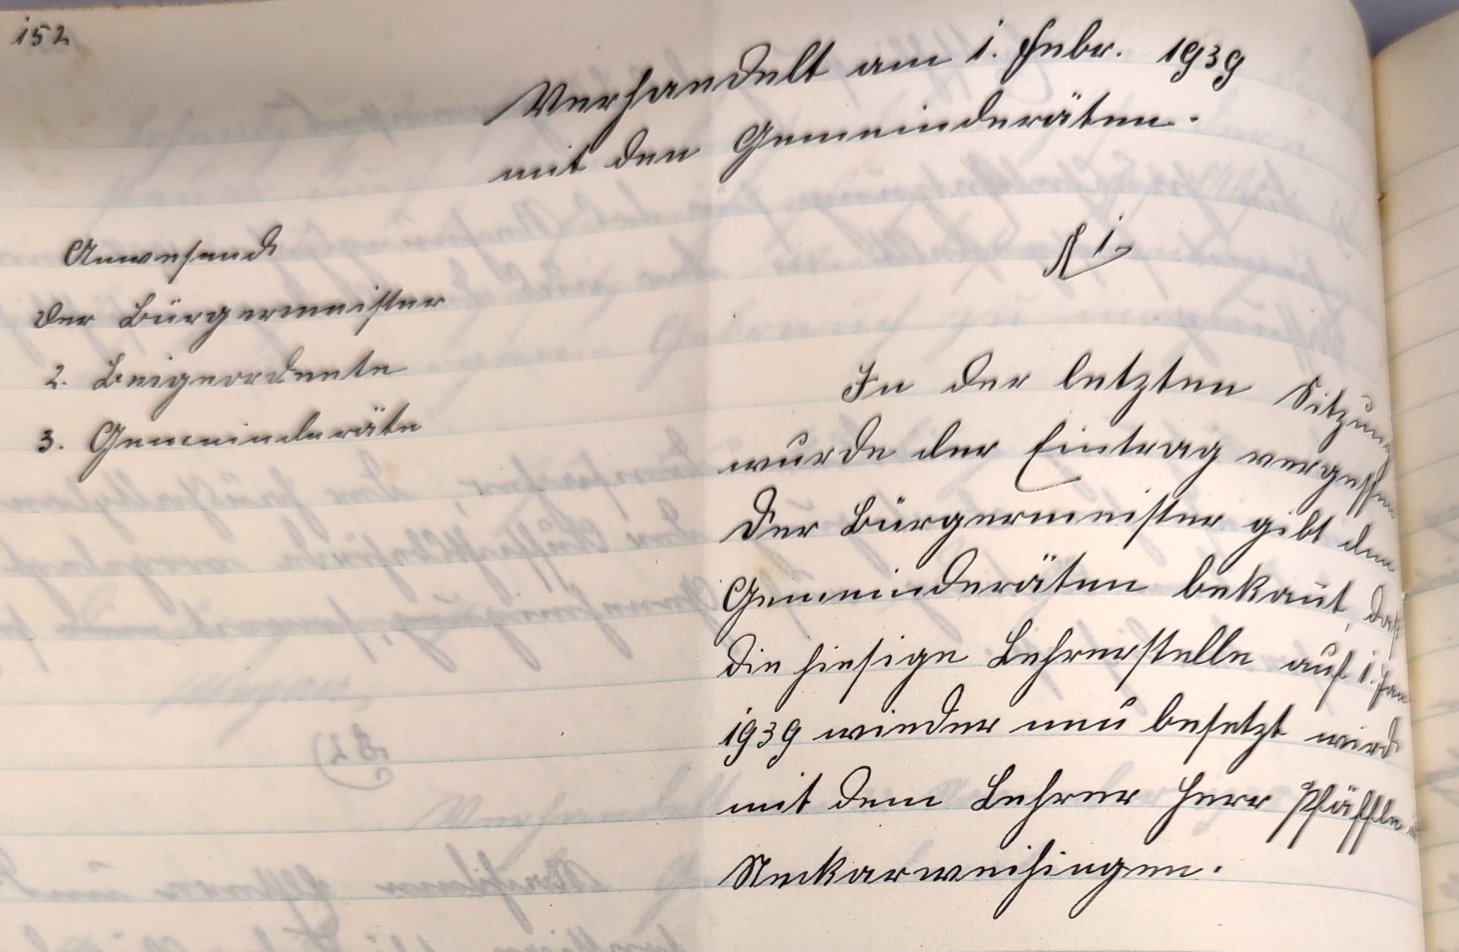 152
Verhandelt am 1. Febr. 1939
mit den Gemeinderäten.
Anwesend
der Bürgermeister
2. Beigeordnete
3. Gemeinderäte
§ 1.
In der letzten Sitzung
wurde der Eintrag vergessen
Der Bürgermeister gibt den
Gemeinderäten bekan̄t, daß
die hiesige Lehrerstelle auf 1. Jan
1939 wieder neu besetzt wird
mit dem Lehrer Herr Pfäffle
Neckarweihingen.